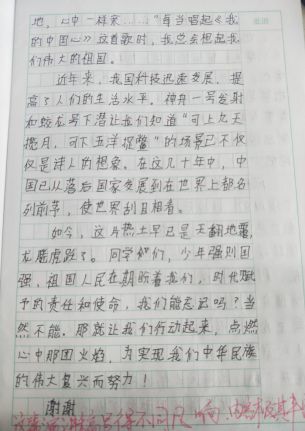 地，心中一样亲……”每当唱起《我
的中国心》这首歌时，我总会想起我
们伟大的祖国。
近年来，我国科技迅速发展，提
高了人们的生活水平。神舟一号发射
和蛟龙号下潜让我们知道“可上九天
揽月，可下五洋捉鳖”的场景已不仅
仅是诗人的想象。在这几十年中，中
国已从落后国家发展到在世界上都名
列前茅，使世界刮目相看。
如今，这片热土早已是天翻地覆，
龙腾虎跃了。同学们，少年强则国
强，祖国人民在期盼着我们，时代赋
予的责任和使命，我们能忘记吗？当
然不能。那就让我们行动起来，点燃
心中那团火焰，为实现我们中华民族
的伟大复兴而努力！
谢谢